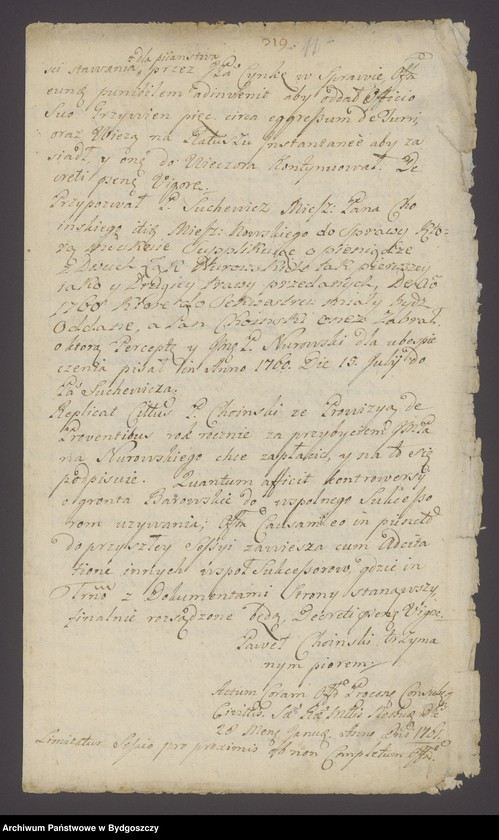 319. 11
dla pijanstwa
sci stawania, przez Pa Cynkę w Sprawie Offm
eund punillem adinvenit aby oddał Officio
Suo Grzywien pięć circa egressum de Juri,
oraz Wieżą na Ratuszu instantanee aby za
siadł, y onę do Wieczora kontynuował. De
creti pñtis Vigore.
Przypozwał P. Suchewicz Miesz: Pana Cho
inskiego tiż Miesz: Kowskiego do Sprawy Kto
rą supplikuie o pieniądze
z Dwuch Łąk Nurowskich tak pierwszey
iako y Drugiey Trawy przedaney, De Ao
1760 które Sekwestru miały bydź
Oddane, a Pan Choinski onez zabrał
o ktorą Perceptę y Img P. Nurowski dla ubespie
czenia pisał in Anno 1760. Die 15. Julij do
Pa Suchewicza.
Replicat Cittus P. Choinski ze Prowizyą de
Proventibus rok rocznie za przybyciem IMPa
na Nurowskiego chce zapłacić, y na to się
podpisuie. Quantum afficit kontrowersy
o gronta Barowskie do wspolnego Sukcesso
rom uzywania; Offm Causam eo in puncto
do przyszłey Sessyi zawiesza cum Adcita
tione innych wspoł Sukcessorow, gdzie in
Trno z Dokumentami Strony stanąwszy
finalnie rozsądzone będą, Decreti pñtis Vigore.
Paweł Choinski trzyma
nym piorem
Actum coram Offo Procons Consulari
Civitis. Die
28 Mens Januar. Anno Dni 1761.
Limitatur Sessio pro proximis ob non Completum Offm
Archiwum Państwowe w Bydgoszczy